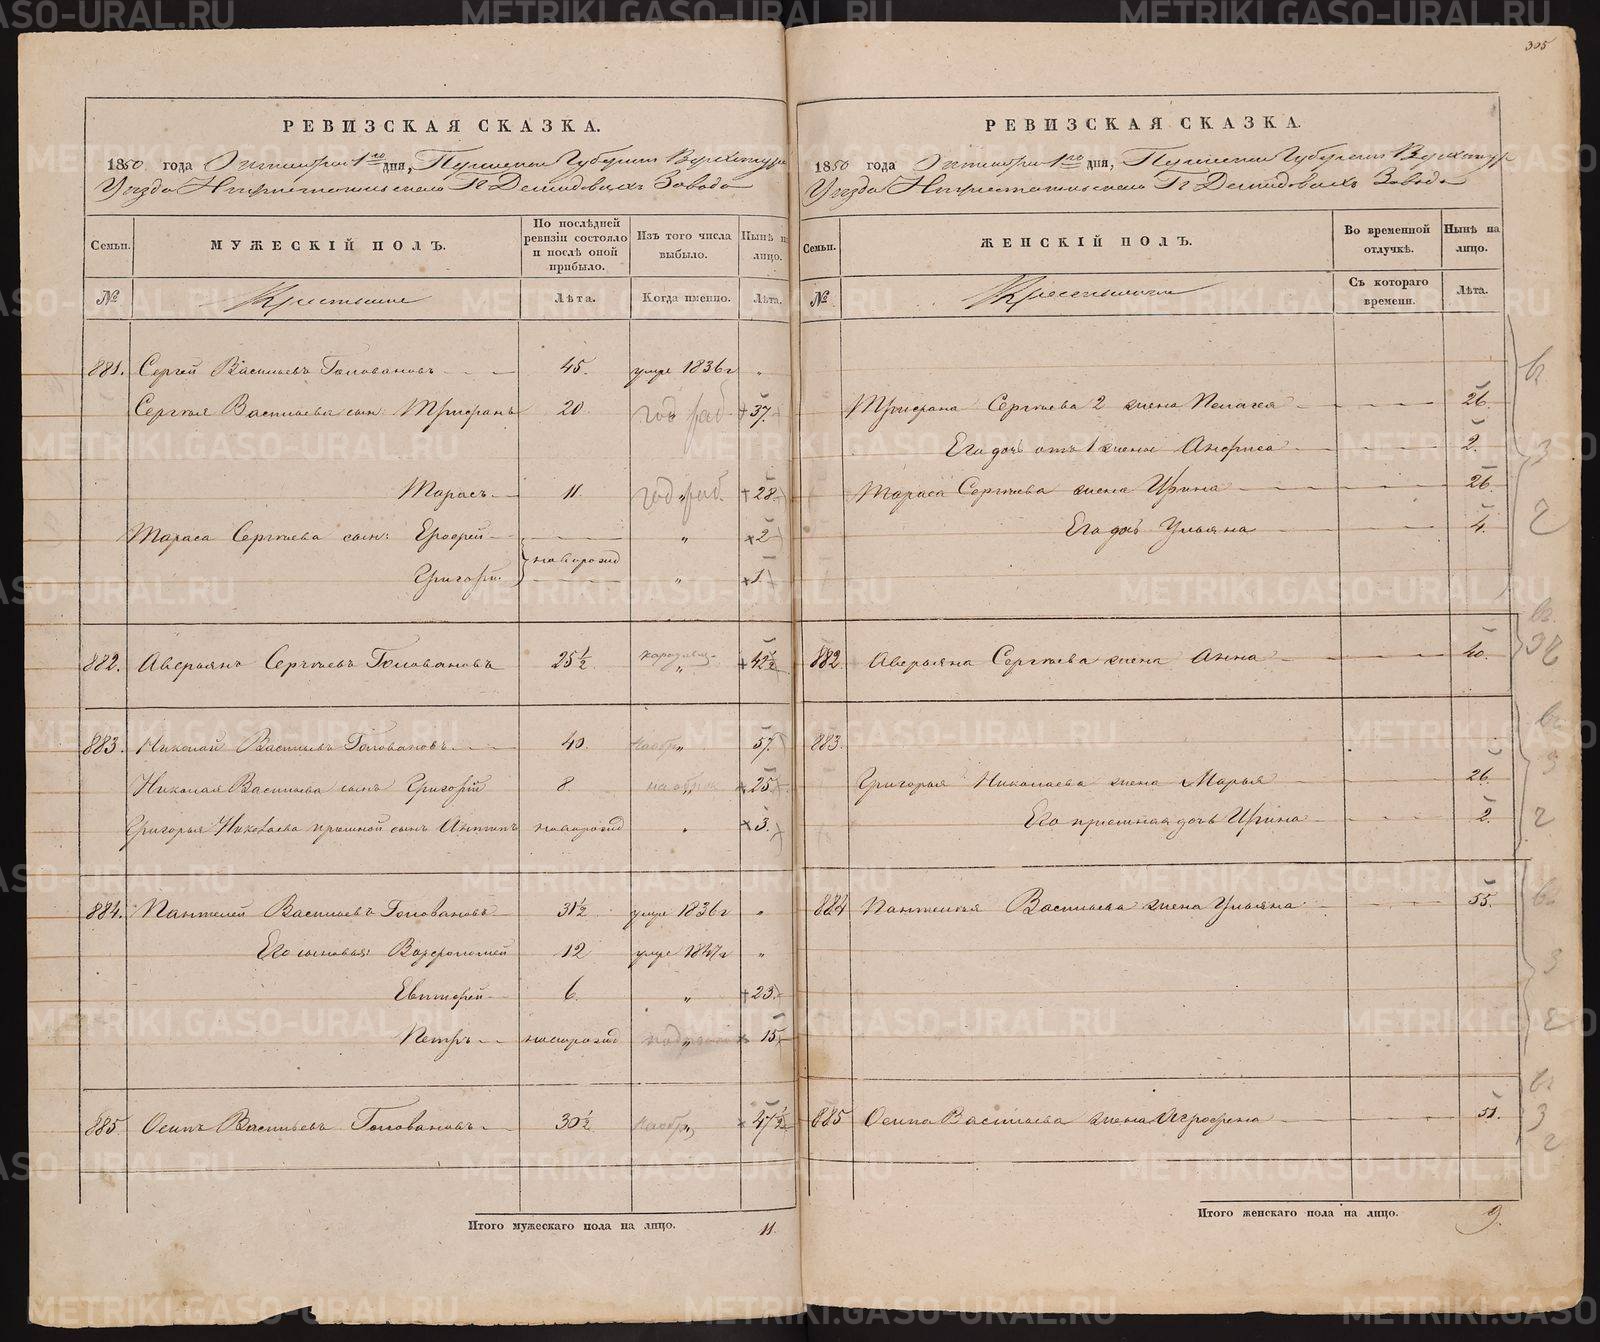 305
РЕВИЗСКАЯ СКАЗКА.
1850 года Октября 1го дня, Пермской Губернии Верхотур
Уезда Нижнетагильскаго Гг Демидовыхъ Завода
Семьи.
МУЖЕСКІЙ ПОЛЪ.
По послѣдней ревизіи состояло и послѣ оной прибыло.
Изъ того числа выбыло.
Нынѣ на лицо.
№
Крестьяне
Лѣта.
Когда именно.
Лѣта.
881. Сергей Васильевъ Головановъ 45. умре 1836 г „
Сергея Васильева сын: Трифонъ 20 год раб +37.
Тарасъ 11. год раб. +28
Тараса Сергеева сын: Ерофей „ +2
новорожд
Григорій „ +1.
882. Аверьянъ Сергеевъ Головановъ 25½ „ +42½
883. Николай Васильевъ Головановъ 40 „ 57.
Николая Васильева сынъ Григорій 8 „ 25
Григорья Николаева приемной сынъ Антипъ новорожд „ +3.
884. Пантелей Васильевъ Головановъ 31½ умре 1836 г „
Его сыновья: Варфоломей 12 умре 1847 г „
Евтифей 6. „ +23.
Петръ новорожд „ 15
885. Осипъ Васильевъ Головановъ 30½ „ 47½
Итого мужескаго пола на лицо. 11.
РЕВИЗСКАЯ СКАЗКА.
1850 года Октября 1го дня, Пермской Губернии Верхотур
Уезда Нижнетагильскаго Гг Демидовыхъ Завода
Семьи.
ЖЕНСКІЙ ПОЛЪ.
Во временной отлучкѣ.
Нынѣ на лицо.
№
Крестьянки
Съ котораго времени.
Лѣта.
Трифона Сергеева 2 жена Пелагея 26.
Его дочь отъ 1 жены Анфиса 2.
Тараса Сергеева жена Ирина 26.
Его дочь Ульяна 4.
882 Аверьяна Сергеева жена Анна 40.
883.
Григорья Николаева жена Марья 26.
Его приемная дочь Ирина 2.
884 Пантелея Васильева жена Ульяна 55.
885 Осипа Васильева жена Агрофена 51.
Итого женскаго пола на лицо. 9.
METRIKI.GASO-URAL.RU